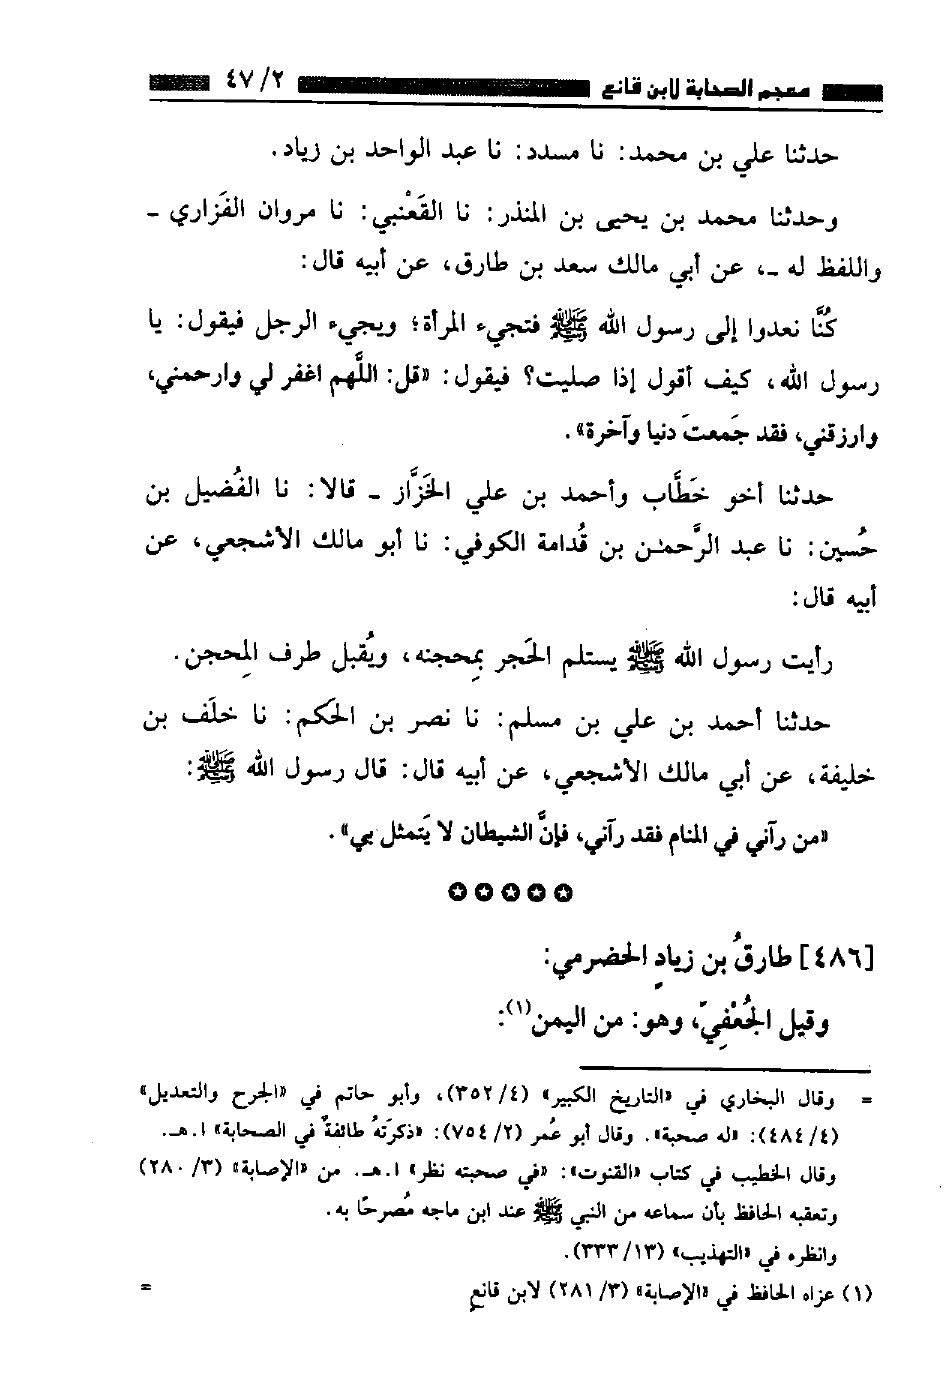 معجم الصحابة لابن قانع ٤٧/٢
حدثنا علي بن محمد: نا مسدد: نا عبد الواحد بن زياد.
وحدثنا محمد بن يحيى بن المنذر: نا القَعْنبي: نا مروان الفَزاري ـ
واللفظ له ـ، عن أبي مالك سعد بن طارق، عن أبيه قال:
كُنَّا نعدوا إلى رسول الله ﷺ فتجيء المرأة؛ ويجيء الرجل فيقول: يا
رسول الله، كيف أقول إذا صليت؟ فيقول: «قل: اللَّهم اغفر لي وارحمني،
وارزقني، فقد جَمعتَ دنيا وآخرة».
حدثنا أخو خَطَّاب وأحمد بن علي الخَزَّاز ـ قالا: نا الفُضيل بن
حُسين: نا عبد الرَّحمٰن بن قُدامة الكوفي: نا أبو مالك الأشجعي، عن
أبيه قال:
رأيت رسول الله ﷺ يستلم الحَجر بِمحجنه، ويُقبل طرف المِحجن.
حدثنا أحمد بن علي بن مسلم: نا نصر بن الحَكم: نا خلَف بن
خليفة، عن أبي مالك الأشجعي، عن أبيه قال: قال رسول الله ﷺ:
«من رآني في المنام فقد رآني، فإنَّ الشيطان لا يَتمثل بي».
[٤٨٦] طارقُ بن زيادٍ الحضرمي:
وقيل الجُعْفِيّ، وهو: من اليمن(١):
= وقال البخاري في «التاريخ الكبير» (٣٥٢/٤)، وأبو حاتم في «الجرح والتعديل»
(٤٨٤/٤): «له صحبة». وقال أبو عُمر (٧٥٤/٢): «ذكرَتهُ طائفةٌ في الصحابة» ا.هـ.
وقال الخطيب في كتاب «القنوت»: «في صحبته نظر» ا.هـ. من «الإصابة» (٢٨٠/٣)
وتعقبه الحافظ بأن سماعه من النبي ﷺ عند ابن ماجه مُصرحًا به.
وانظره في «التهذيب» (٣٣٣/١٣).
(١) عزاه الحافظ في «الإصابة» (٢٨١/٣) لابن قانع =